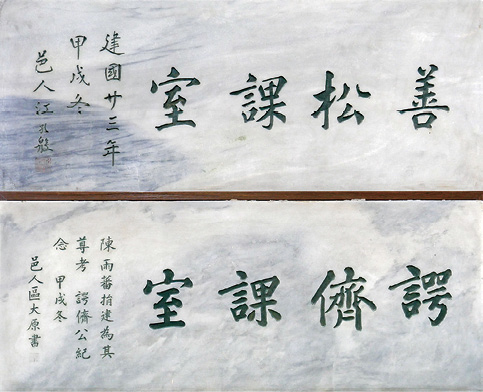 善松課室
建國廿三年
甲戌冬
邑人江孔殷
諤儕課室
陳雨蕃捐建為其
尊考 諤儕公紀
念 甲戌冬
邑人區大原書